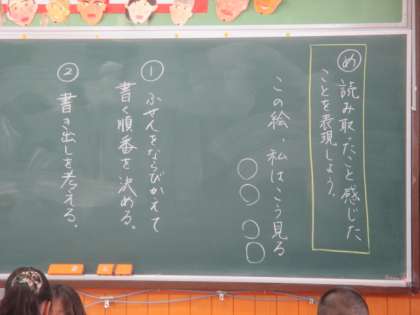 め 読み取ったこと感じた
ことを表現しよう。
この絵、私はこう見る
○○ ○○
① ふせんをならびかえて
書く順番を決める。
② 書き出しを考える。